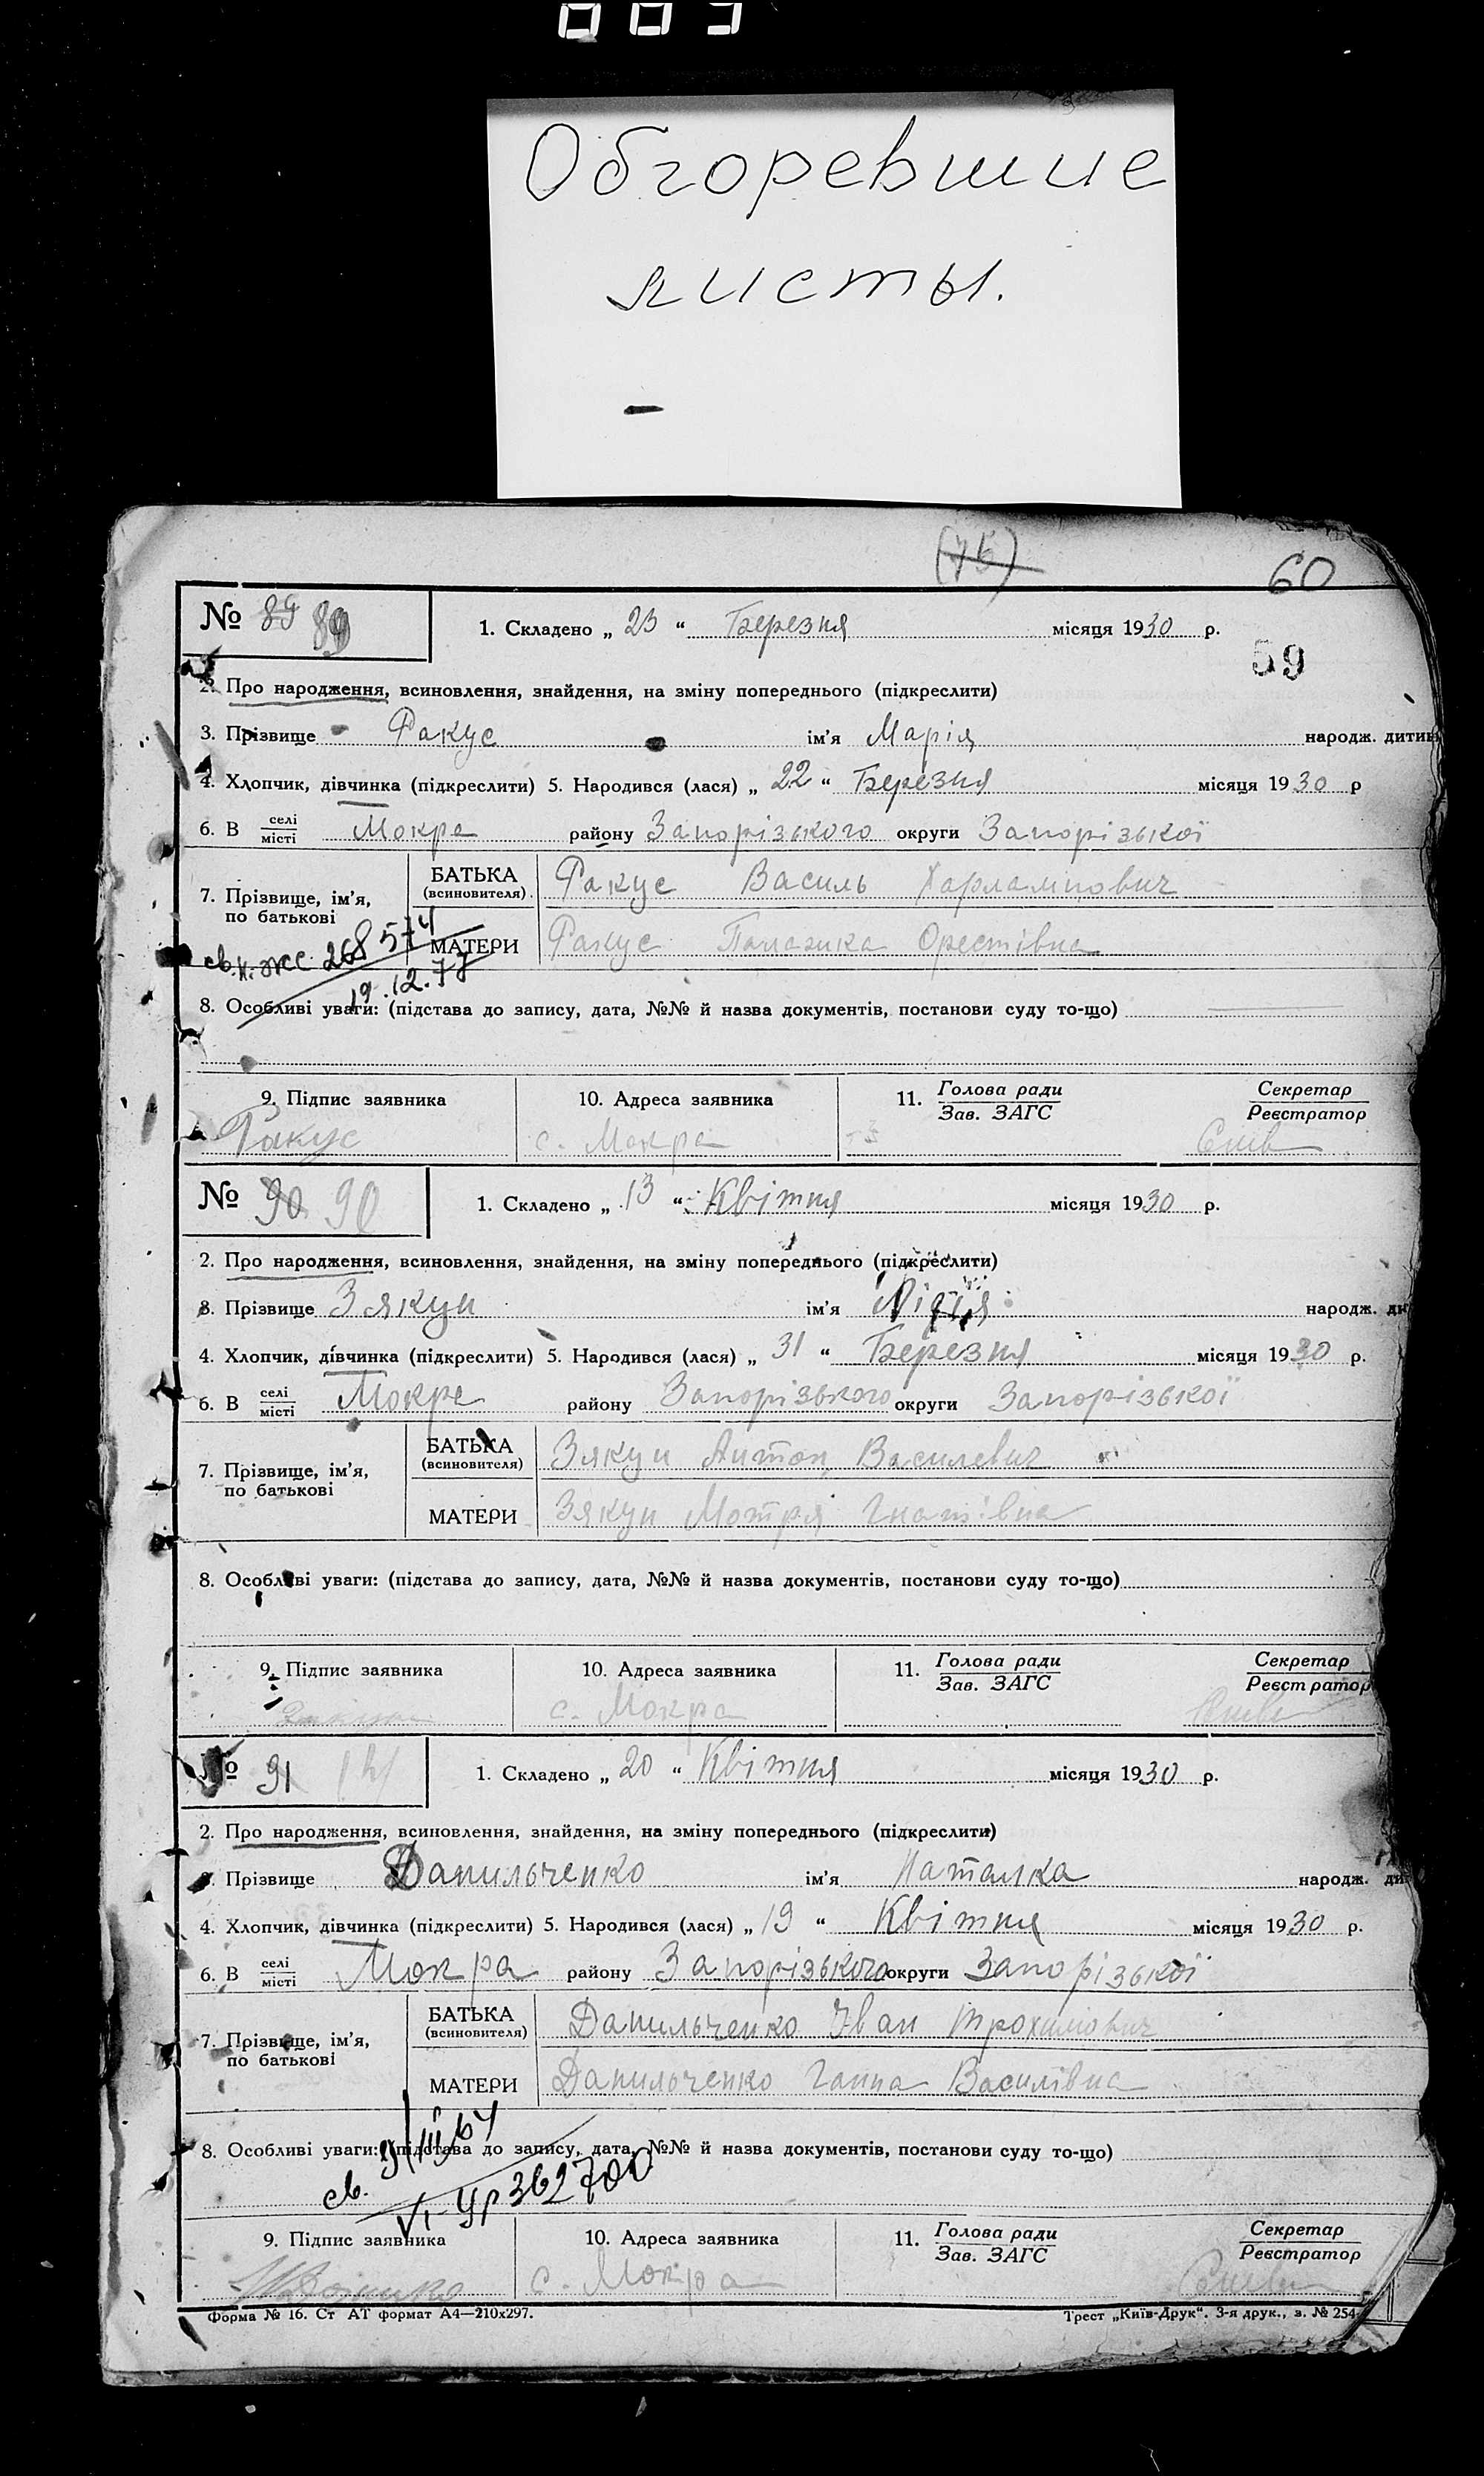 Обгоревшие
листы.
60
59
№ 89 89
1. Складено „ 23 “ Березня місяця 1930 р.
2. Про народження, всиновлення, знайдення, на зміну попереднього (підкреслити)
3. Прізвище Факус ім’я Марія народж. дитини
4. Хлопчик, дівчинка (підкреслити) 5. Народився (лася) „ 22 “ Березня місяця 1930 р
6. В селі/місті Мокра району Запорізького округи Запорізької
7. Прізвище, ім’я, по батькові
БАТЬКА (всиновителя) Факус Василь Харлампович
МАТЕРИ Факус Палажка Орестівна
268574
19.12.77
8. Особливі уваги: (підстава до запису, дата, №№ й назва документів, постанови суду то-що)
9. Підпис заявника 10. Адреса заявника 11. Голова ради/Зав. ЗАГС Секретар/Реєстратор
Факус с. Мокра
№ 90 90
1. Складено „ 13 “ Квітня місяця 1930 р.
2. Про народження, всиновлення, знайдення, на зміну попереднього (підкреслити)
3. Прізвище Зякун ім’я Лідія народж. ди
4. Хлопчик, дівчинка (підкреслити) 5. Народився (лася) „ 31 “ Березня місяця 1930 р.
6. В селі/місті Мокре району Запорізького округи Запорізької
7. Прізвище, ім’я, по батькові
БАТЬКА (всиновителя) Зякун Антон Василевич
МАТЕРИ Зякун Мотря Гнатівна
8. Особливі уваги: (підстава до запису, дата, №№ й назва документів, постанови суду то-що)
9. Підпис заявника 10. Адреса заявника 11. Голова ради/Зав. ЗАГС Секретар/Реєстратор
с. Мокра
№ 91
1. Складено „ 20 “ Квітня місяця 1930 р.
2. Про народження, всиновлення, знайдення, на зміну попереднього (підкреслити)
3. Прізвище Данильченко ім’я Наталка народж. ди
4. Хлопчик, дівчинка (підкреслити) 5. Народився (лася) „ 19 “ Квітня місяця 1930 р.
6. В селі/місті Мокра району Запорізького округи Запорізької
7. Прізвище, ім’я, по батькові
БАТЬКА (всиновителя) Данильченко Іван Трохимович
МАТЕРИ Данильченко Ганна Василівна
8. Особливі уваги: (підстава до запису, дата, №№ й назва документів, постанови суду то-що)
св. 9/III 64
VI-УР 362700
9. Підпис заявника 10. Адреса заявника 11. Голова ради/Зав. ЗАГС Секретар/Реєстратор
с. Мокра
Форма № 16. Ст АТ формат А4—210х297. Трест „Київ-Друк“. 3-я друк., з. № 254